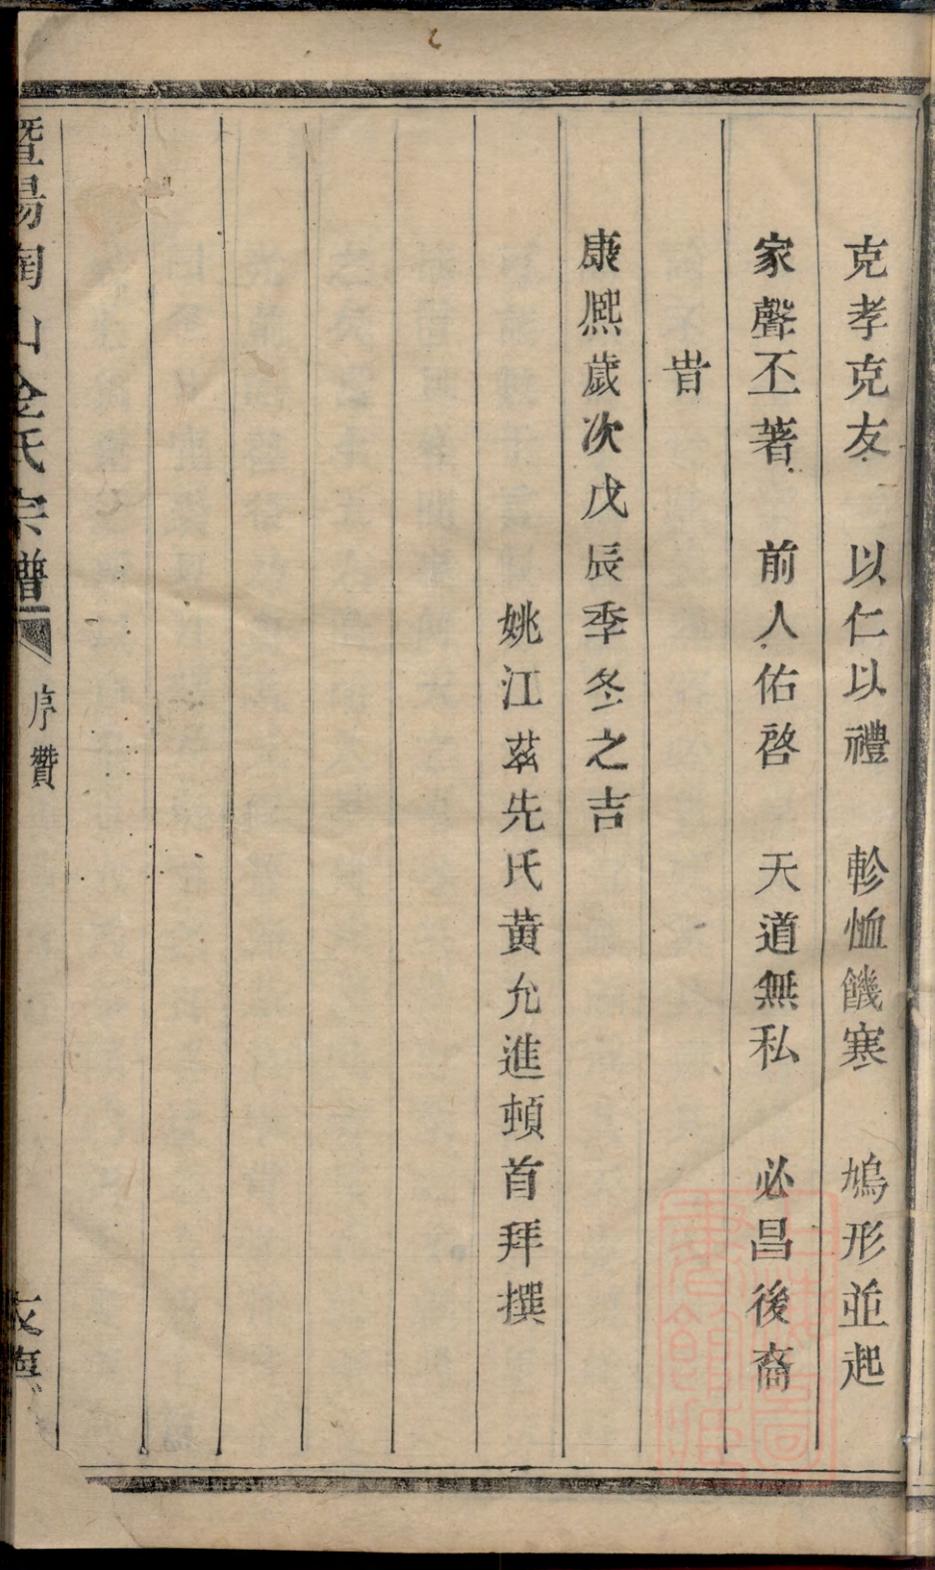 克孝克友　以仁以禮　軫恤饑寒　鳩形並起
家聲丕著　前人佑啓　天道無私　必昌後裔
旹
康熈歲次戊辰季冬之吉
姚江茲先氏黃允進頓首拜撰
暨陽陶山金氏宗譜
序贊